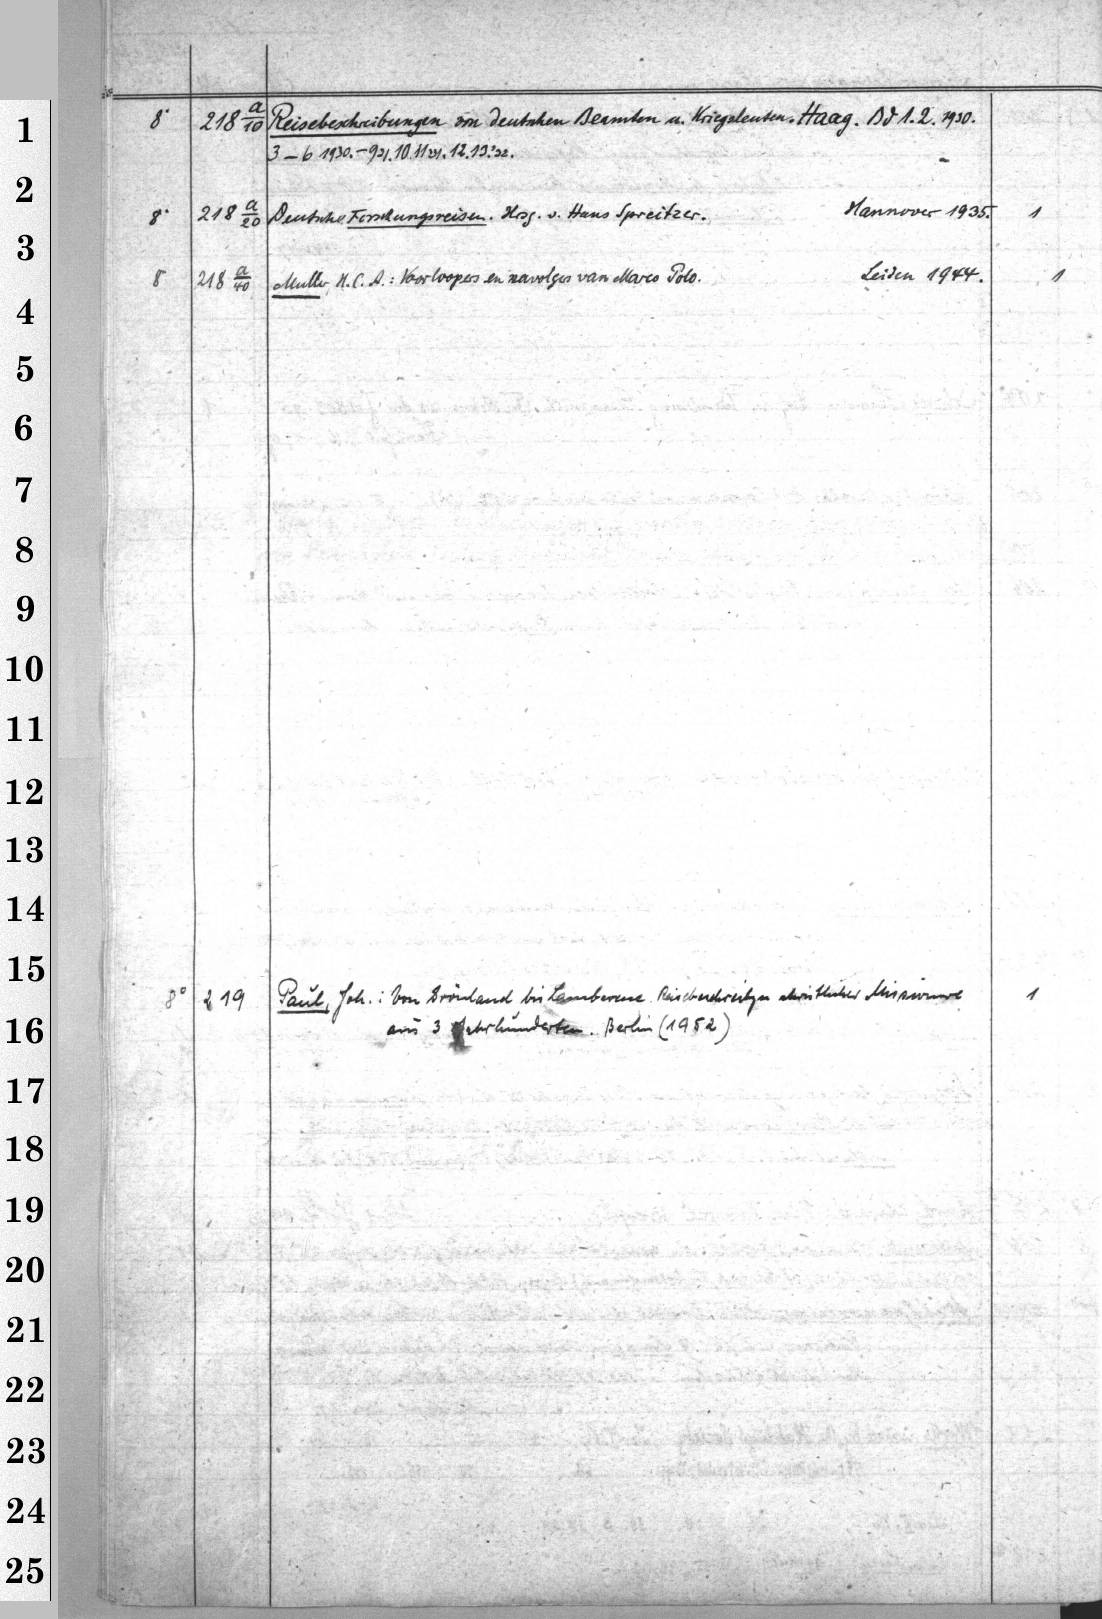 1
8° 218 a/10 Reisebeschreibungen von deutschen Beamten u. Kriegsleuten. Haag. Bd 1. 2. 1930.
3–6 1930. – 9 31. 10. 11 31. 12. 13. 32.
2
8° 218 a/20 Deutsche Forschungsreisen. Hrsg. v. Hans Spreitzer. Hannover 1935. 1
3
8 218 a/40 Muller, H. C. A.: Voorloopers en navolgers van Marco Polo. Leiden 1944. 1
4
5
6
7
8
9
10
11
12
13
14
15
8° 219 Paul, Joh.: Von Grönland bis Lambarene. Reisebeschreibgn christlicher Missionare 1
16
aus 3 Jahrhunderten. Berlin (1952)
17
18
19
20
21
22
23
24
25